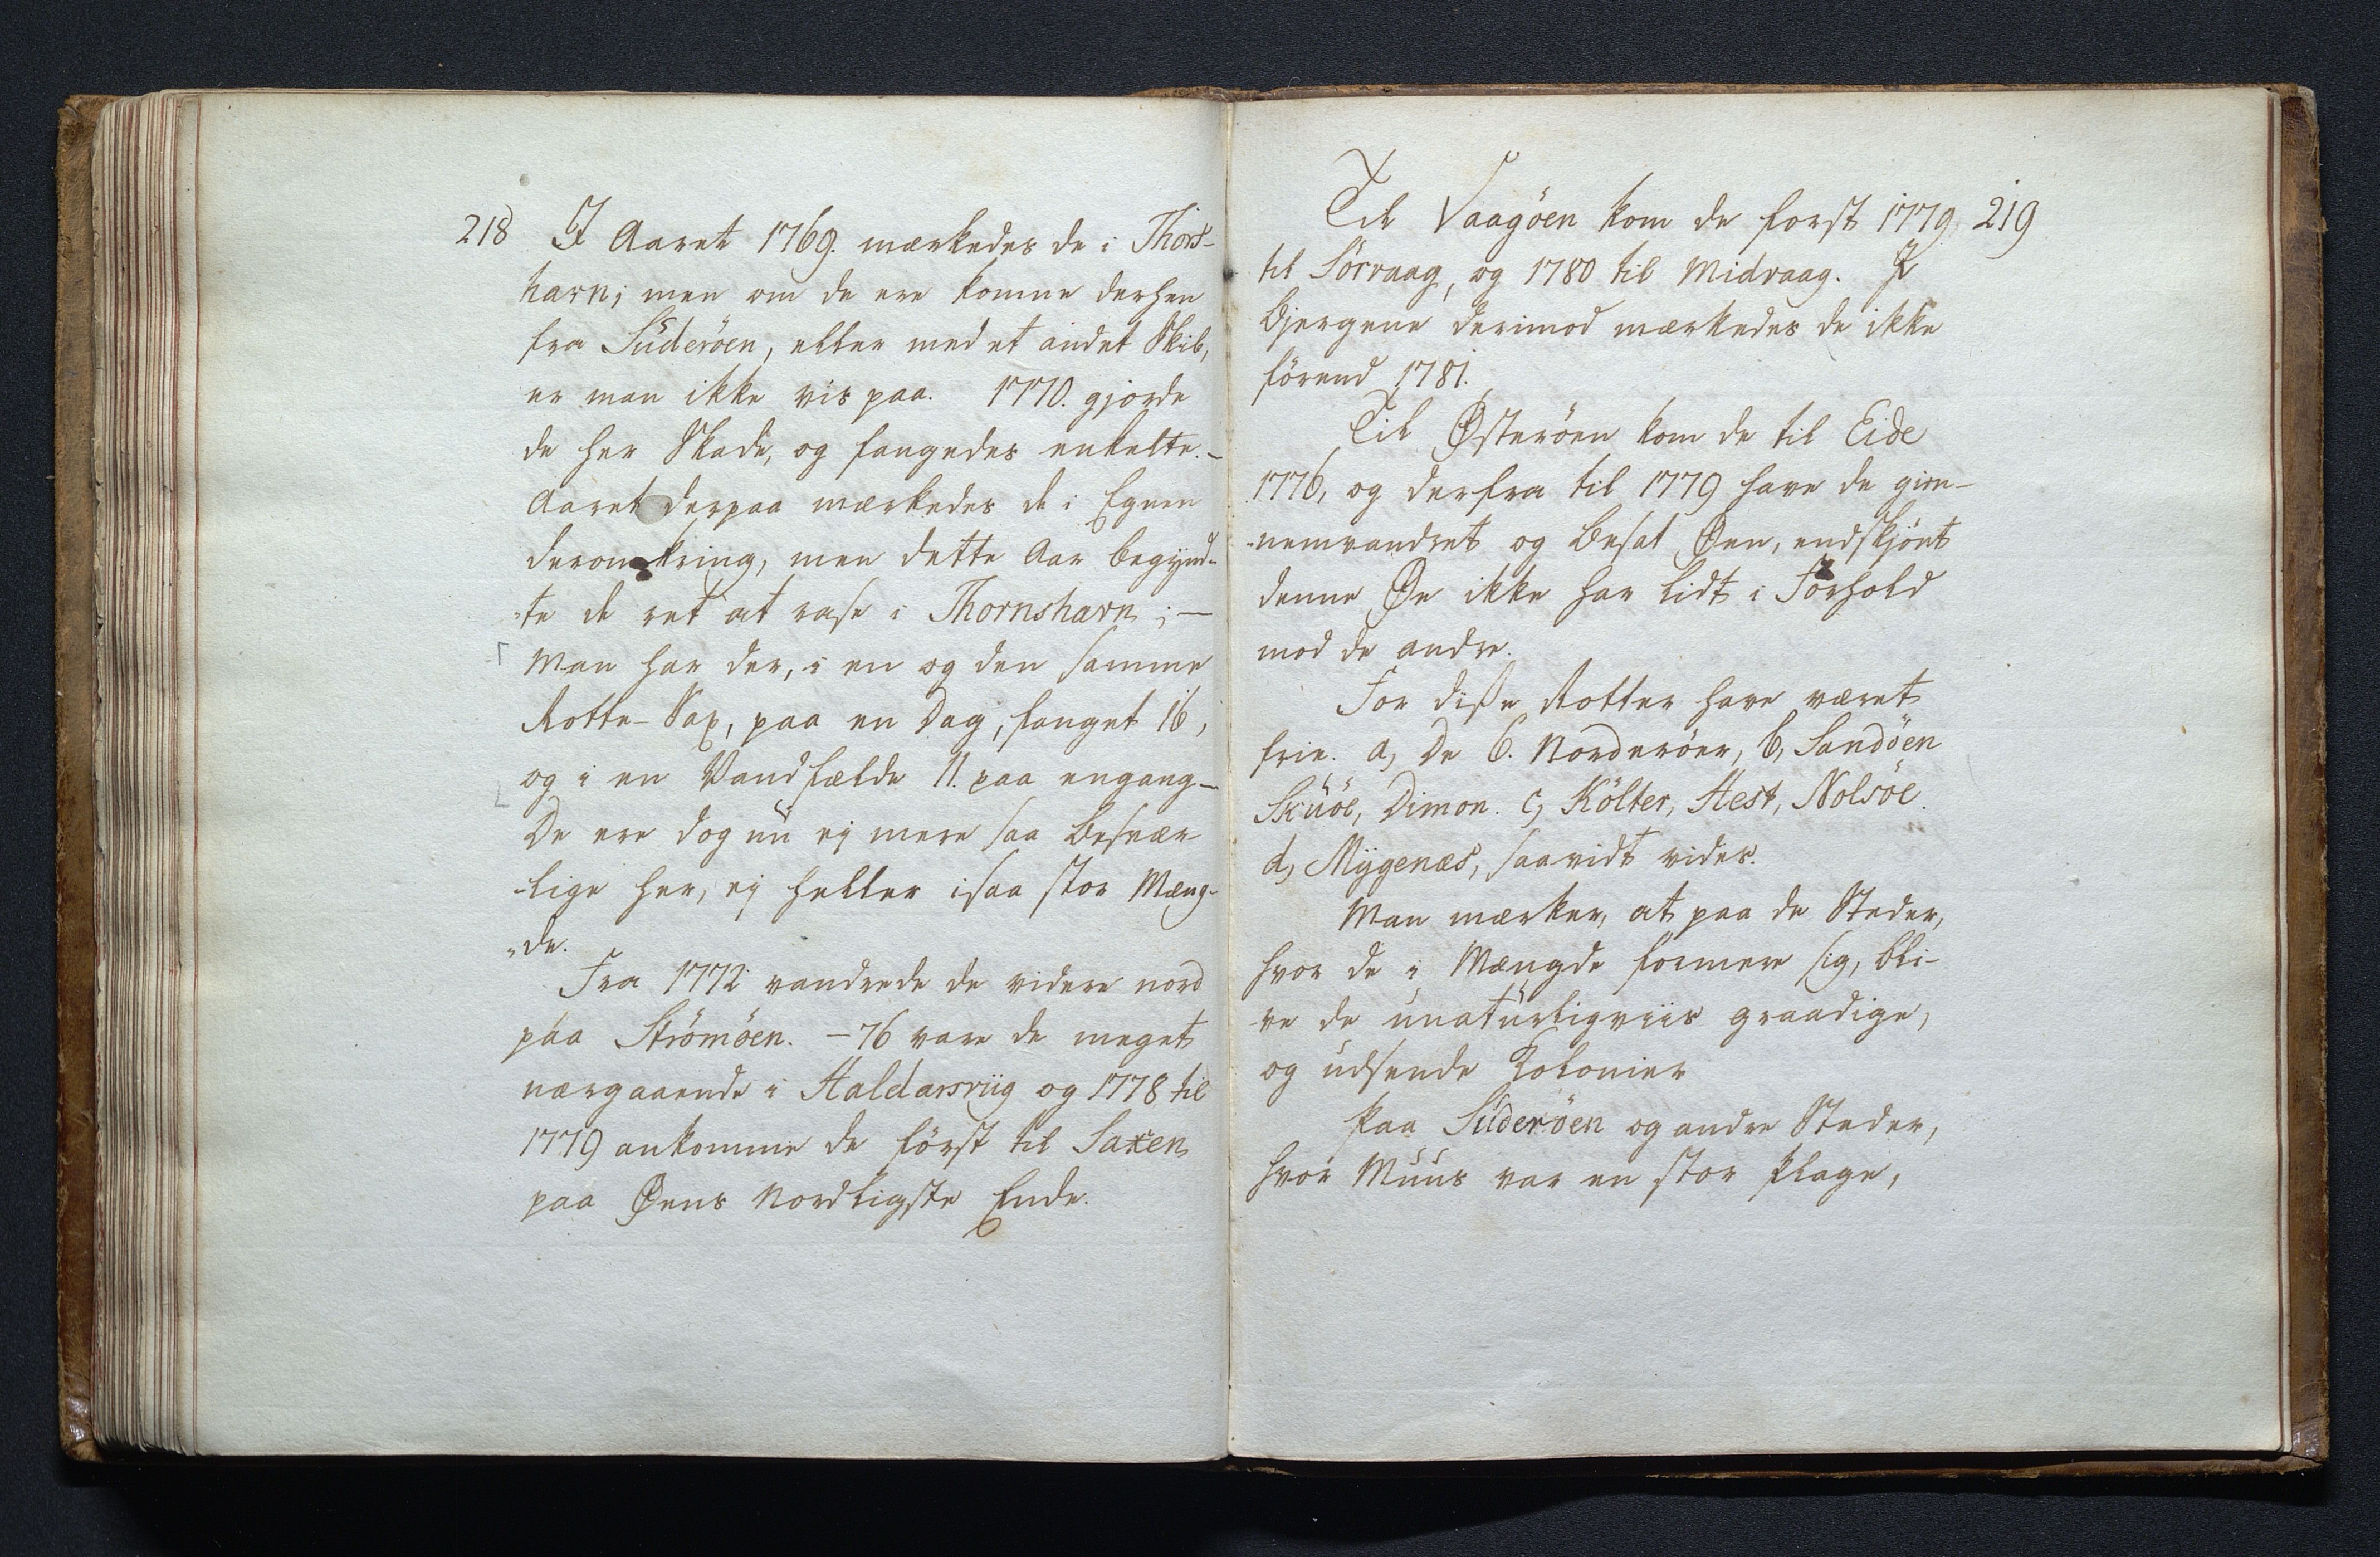 218
I Aaret 1769. mærkedes de i Thors-
havn; men om de ere komne derhen
fra Suderöen, eller med et andet Skib,
er man ikke vis paa. 1770. gjorde
de her Skade, og fangedes enkelte.-
Aaret derpaa mærkedes de i Egnen
deromkring, men dette Aar begynd-
-te de ret at rase i Thornshavn; -
Man har der, i en og den samme
Rotte-Sax, paa en Dag, fanget 16,
og i en Vandfælde 11. paa engang-
De ere dog nu ej mere saa besvær
-lige her, ej heller i saa stor Mæng-
-de.
Fra 1772 vandrede de videre nord
paa Strömöen. -76 vare de meget
nærgaaende i Haldarsviig og 1778 til
1779 ankomme de först til Saxen
paa Øens Nordligste Ende.
219
Til Vaagöen kom de forst 1779
til Sörvaag, og 1780 til Midvaag. I
Bjergene derimod mærkedes de ikke
förend 1781.
Til Østeröen kom de til Eide
1776, og derfra til 1779 have de gien-
-nemvandret og besat Øen, endskjönt
denne Øe ikke har lidt i Forhold
mod de andre.
For disse Rotter have været
frie. a, De 6. Norderöer, b, Sandöen
Skuöe, Dimon. c, Költer, Hest, Nolsöe.
d, Myggenæs, saavidt vides.
Man mærker, at paa de Steder,
hvor de i Mængde formere sig, bli-
ve de unaturligviis graadige,
og udsende Kolonier
Paa Suderöen og andre Steder,
hvor Muus var en stor Plage,